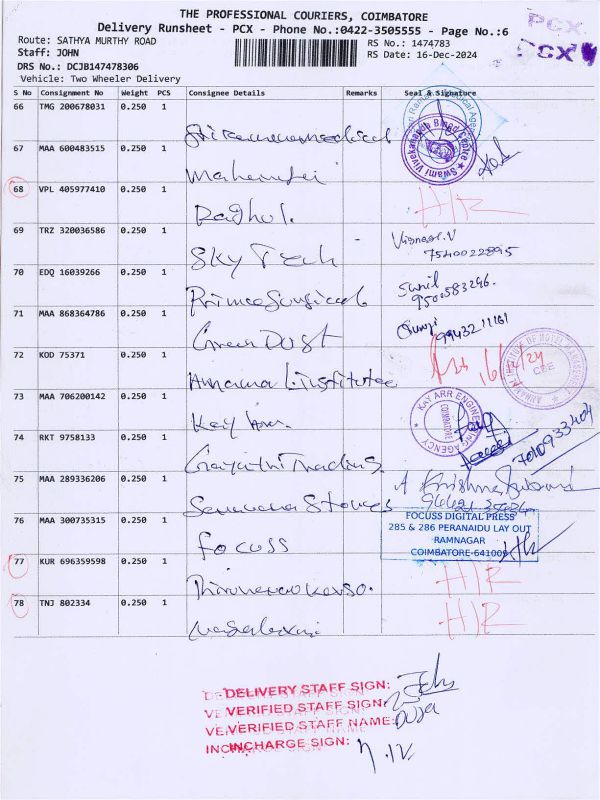 THE PROFESSIONAL COURIERS, COIMBATORE
PCX
Delivery Runsheet - PCX - Phone No.:0422-3505555 - Page No.:6
Route: SATHYA MURTHY ROAD
RS No.: 1474783
PCX
Staff: JOHN
RS Date: 16-Dec-2024
DRS No.: DCJB147478306
Vehicle: Two Wheeler Delivery
S No Consignment No Weight PCS Consignee Details Remarks Seal & Signature
66 TMG 200678031 0.250 1
Swami Vivekananda Blood Centre
67 MAA 600483515 0.250 1
68 VPL 405977410 0.250 1 Raghul. H/R
69 TRZ 320036586 0.250 1 Sky Tech
7540022895
70 EDQ 16039266 0.250 1 Prince Surgical Sunil
9500583296.
71 MAA 868364786 0.250 1 Green Dust
9943211161
72 KOD 75371 0.250 1 16/12/24
INSTITUTE OF HOTEL MANAGEMENT
CBE
73 MAA 706200142 0.250 1 Kay Arr.
KAY ARR ENGINEERING AGENCY
COIMBATORE
74 RKT 9758133 0.250 1 Gayathri Trading.
7010933404
75 MAA 289336206 0.250 1 Saravana Stores
76 MAA 300735315 0.250 1 Focuss
FOCUSS DIGITAL PRESS
285 & 286 PERANAIDU LAY OUT
RAMNAGAR
COIMBATORE-641009
77 KUR 696359598 0.250 1 H/R
78 TNJ 802334 0.250 1 H/R
DELIVERY STAFF SIGN: John
VERIFIED STAFF SIGN:
VERIFIED STAFF NAME:
INCHARGE SIGN: